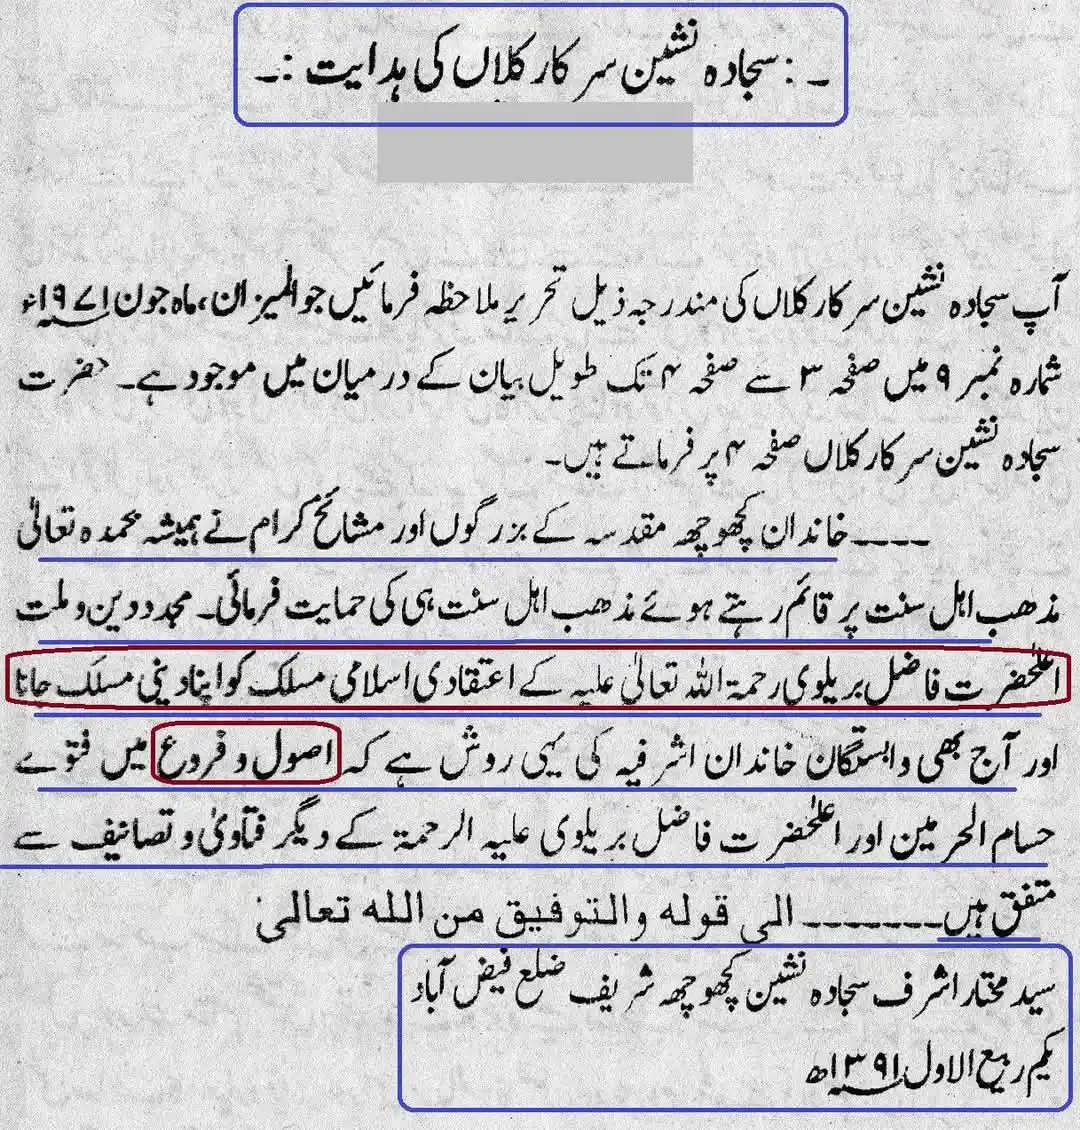 ۔:سجادہ نشین سرکار کلاں کی ہدایت:۔
آپ سجادہ نشین سرکار کلاں کی مندرجہ ذیل تحریر ملاحظہ فرمائیں جو المیزان، ماہ جون ۱۹۷۱ء
شمارہ نمبر ۹ میں صفحہ ۳ سے صفحہ ۴ تک طویل بیان کے درمیان میں موجود ہے۔ حضرت
سجادہ نشین سرکار کلاں صفحہ ۴ پر فرماتے ہیں۔
۔۔۔۔خاندان کچھوچھہ مقدسہ کے بزرگوں اور مشائخ کرام نے ہمیشہ محمدہ تعالیٰ
مذھب اہل سنت پر قائم رہتے ہوئے مذھب اہل سنت ہی کی حمایت فرمائی۔ مجدد دین و ملت
اعلٰحضرت فاضل بریلوی رحمۃ اللہ تعالیٰ علیہ کے اعتقادی اسلامی مسلک کو اپنا دینی مسلک جانا
اور آج بھی وابستگان خاندان اشرفیہ کی یہی روش ہے کہ اصول و فروع میں فتوے
حسام الحرمین اور اعلٰحضرت فاضل بریلوی علیہ الرحمۃ کے دیگر فتاویٰ و تصانیف سے
متفق ہیں۔۔۔۔۔۔۔۔الی قوله والتوفیق من الله تعالیٰ
سید مختار اشرف سجادہ نشین کچھوچھہ شریف ضلع فیض آباد
یکم ربیع الاول ۱۳۹۱ھ